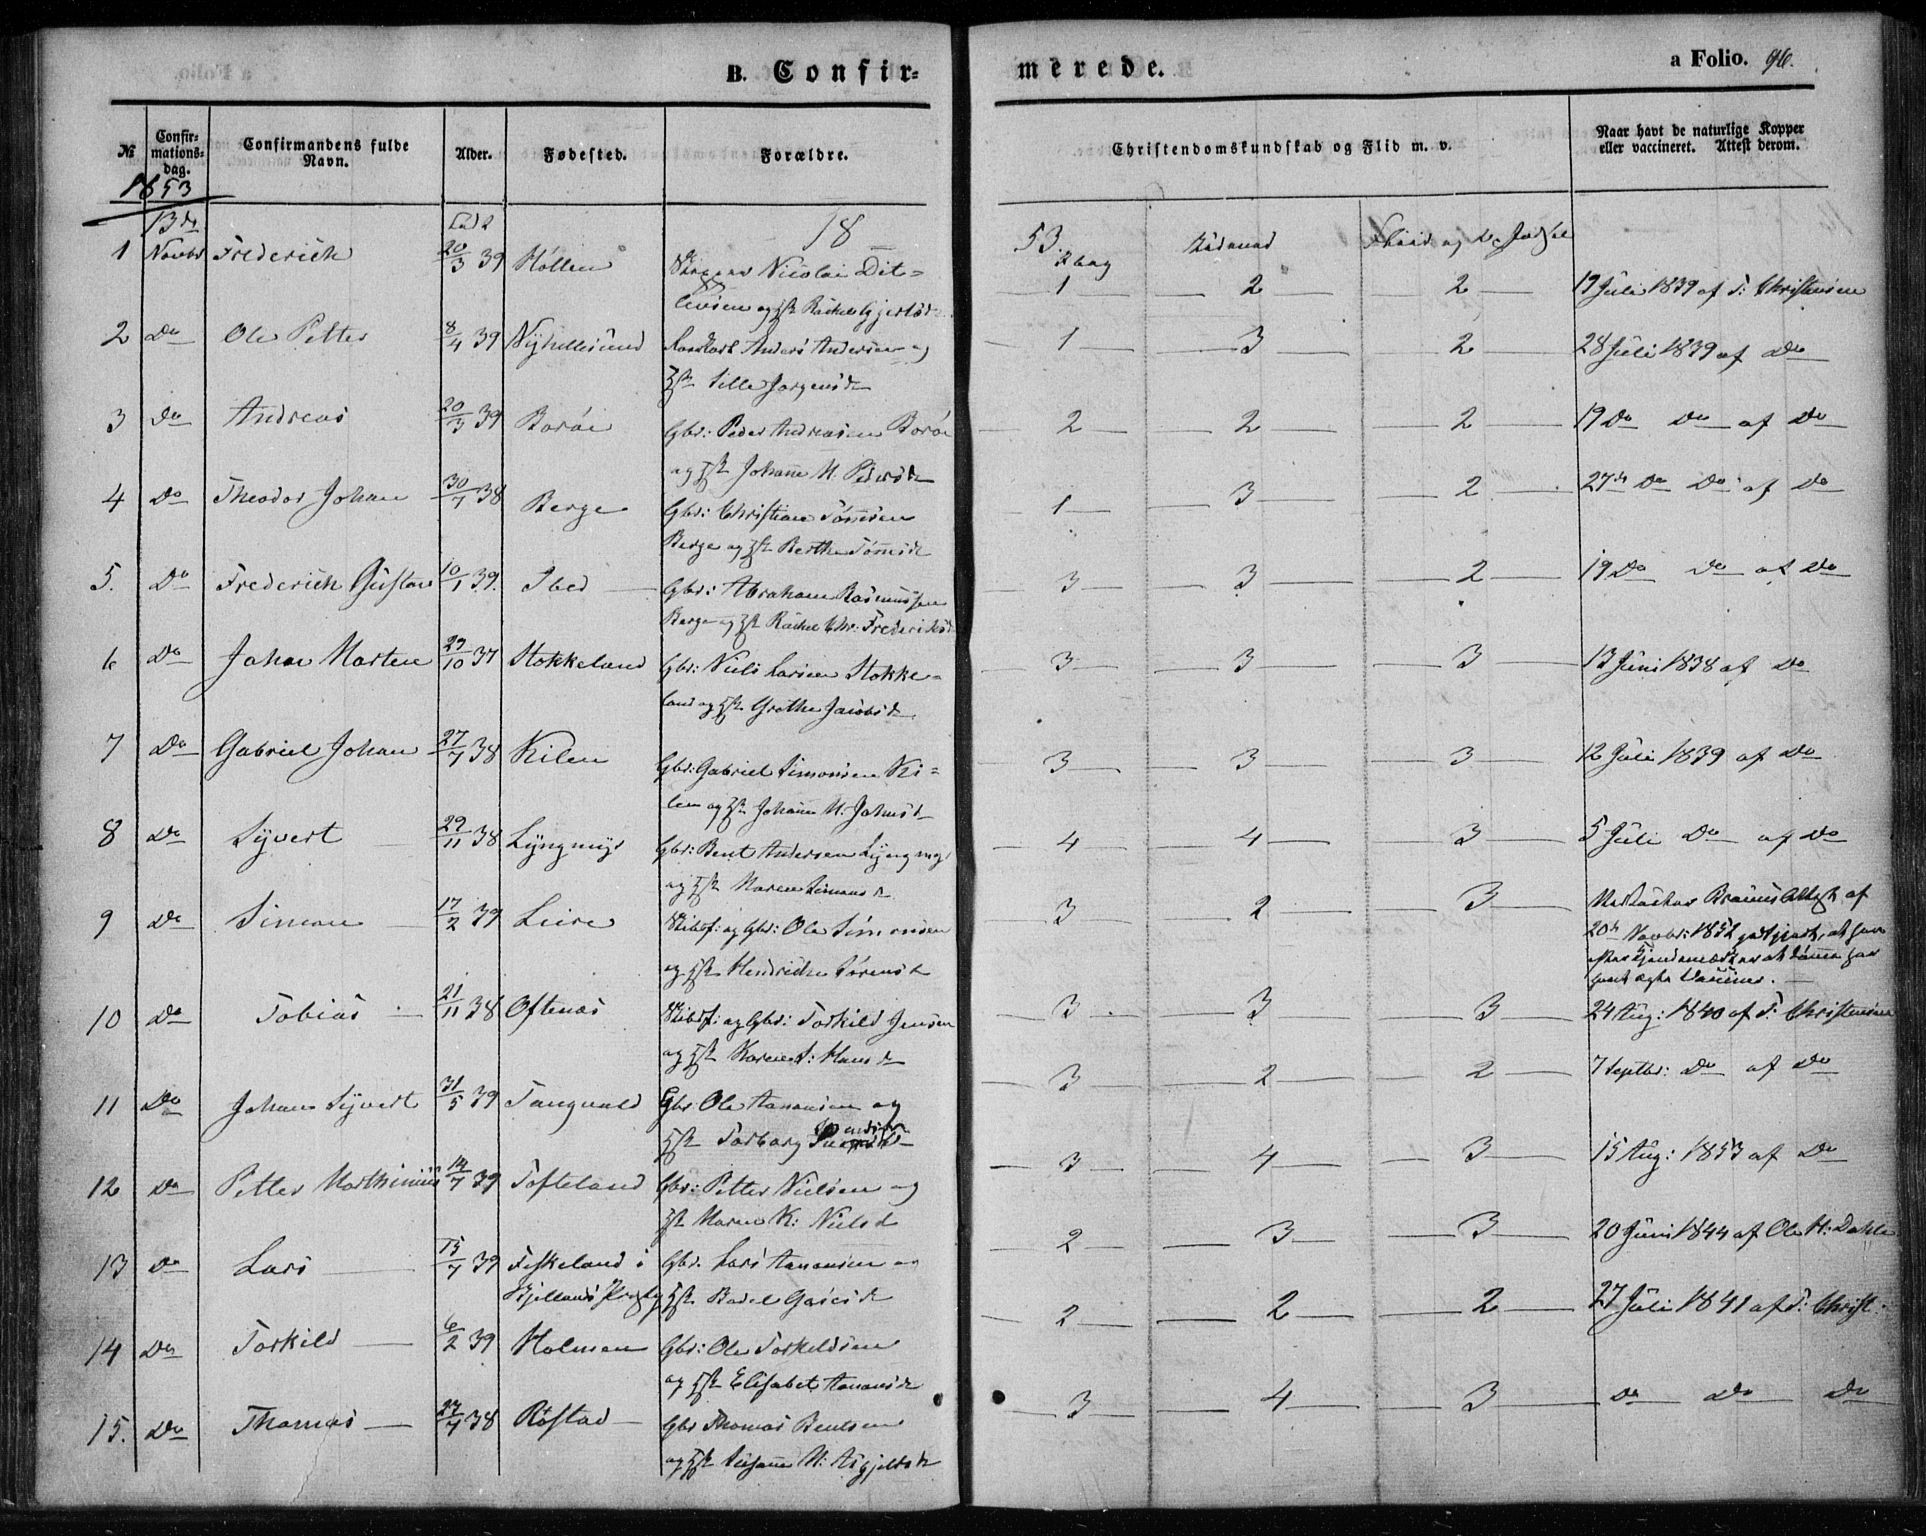 B. Confir-
merede.
a Folio. 96.
№
Confir-
mations-
dag.
Confirmandens fulde
Navn.
Alder.
Fødested.
Forældre.
Christendomskundskab og Flid m. v.
Naar havt de naturlige Kopper
eller vaccineret. Attest derom.
1853
13de
18
53
1 Novbr Frederich 20/3 39 Høllen Nicolai Dit-
levsen og Hst Rachel Gjertsd
1 2 2 19 Juli 1839 af T: Christensen
2 Do Ole Petter 8/4 39 Nÿhellesund Anders Andersen og
Hst Sille Jørgensd
1 3 2 28 Juli 1839 af Do
3 Do Andreas 20/3 39 Borøe Gbr: Peder Andreasen Borøe
og Hst Johane M. Pedersd
2 2 2 19 Do Do af Do
4 Do Theodor Johan 30/7 38 Berge Gbr: Christian Tønnesen
Berge og Hst Berthe Tønnesd
1 3 2 27de Do Do af Do
5. Do Frederich Gustav 10/1 39. Ibed Gbr: Abraham Rasmussen
Berge og Hst Rachel Chr: Frederiksd
3 3 2 19 Do Do af Do
6 Do Johan Marten 29/10 37 Stokkeland Gbr: Niels Larsen Stokke-
land og Hst Grethe Jacobsd
3 3 3 13 Juni 1838 af Do
7 Do Gabriel Johan 27/7 38 Kilen Gbr: Gabriel Simonsen Ki-
len og Hst Johanne M. Johnsd
3 3 3 12 Juli 1839 af Do
8 Do Syvert 29/11 38 Lÿngmyr Gbr: Bent Andersen Lÿngmyr
og Hst Maren Simonsd
4 4 3 5 Juli Do af Do
9 Do Simon 17/2 39 Leire og Gbr: Ole Simonsen
og Hst Hendrikke Sørensd
3 2 3
20de Novbr: 1852
10 Do Tobias 21/11 38 Oftenæs og Gbr: Torkild Jensen
og Hst Karen S: Hansd
3 3 3 24 Aug: 1840 af T: Christensen
11 Do Johan Syvert 31/5 39 Tangvald Gbr Ole Aanonsen og
Hst Torborg
3 2 2 7 Septbr: Do af Do
12 Do Petter Mathinius 14/7 39 Tofteland Gbr: Petter Nielsen og
Hst Maren K: Nielsd
3 4 3 15 Aug: 1853 af Do
13 Do Lars 15/7 39 Fiskeland i Gbr. Lars Aanonsen og
Bjellands Hst Bodel
2 3 3 20 Juni 1844 af Ole H: Dahle
14 Do Torkild 6/2 39 Holmen Gbr: Ole Torkeldsen
og Hst Elisabet Aanonsd
2 2 2 27 Juli 1841 af T: Christ:
15. Do Thomas 27/7 38 Røstad Gbr Thomas Bentsen
og Hst Susanne M: Asgjeldsd
3 4 3 Do Do Do